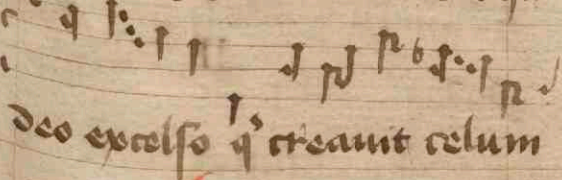 deo excelso qͥ creauit celum